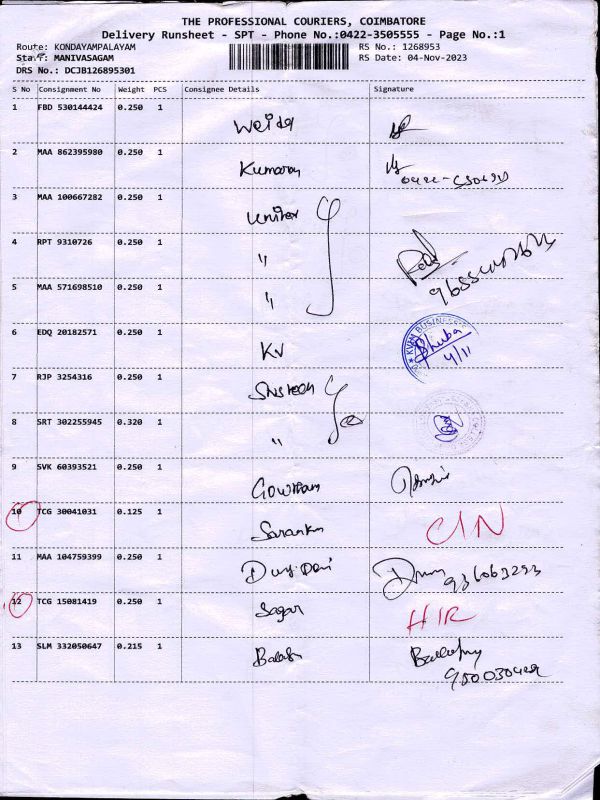 THE PROFESSIONAL COURIERS, COIMBATORE
Delivery Runsheet - SPT - Phone No.:0422-3505555 - Page No.:1
Route: KONDAYAMPALAYAM RS No.: 1268953
Staff: MANIVASAGAM RS Date: 04-Nov-2023
DRS No.: DCJB126895301
S No Consignment No Weight PCS Consignee Details Signature
1 FBD 530144424 0.250 1
2 MAA 862395980 0.250 1 Kumaran
3 MAA 100667282 0.250 1
4 RPT 9310726 0.250 1 "
5 MAA 571698510 0.250 1 "
6 EDQ 20182571 0.250 1 KV Shuba 4/11
7 RJP 3254316 0.250 1
8 SRT 302255945 0.320 1 "
9 SVK 60393521 0.250 1 Gowtham
10 TCG 30041031 0.125 1 CIN
11 MAA 104759399 0.250 1
12 TCG 15081419 0.250 1 Sagar HIR
13 SLM 332050647 0.215 1